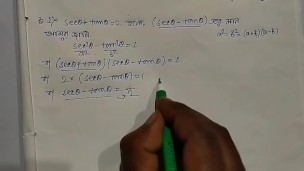 secθ+tanθ=2 হলে, (secθ-tanθ) এর মান
আমরা জানি, a²-b²=(a+b)(a-b)
sec²θ-tan²θ=1
বা (secθ+tanθ)(secθ-tanθ)=1
বা 2×(secθ-tanθ)=1
বা secθ-tanθ=½